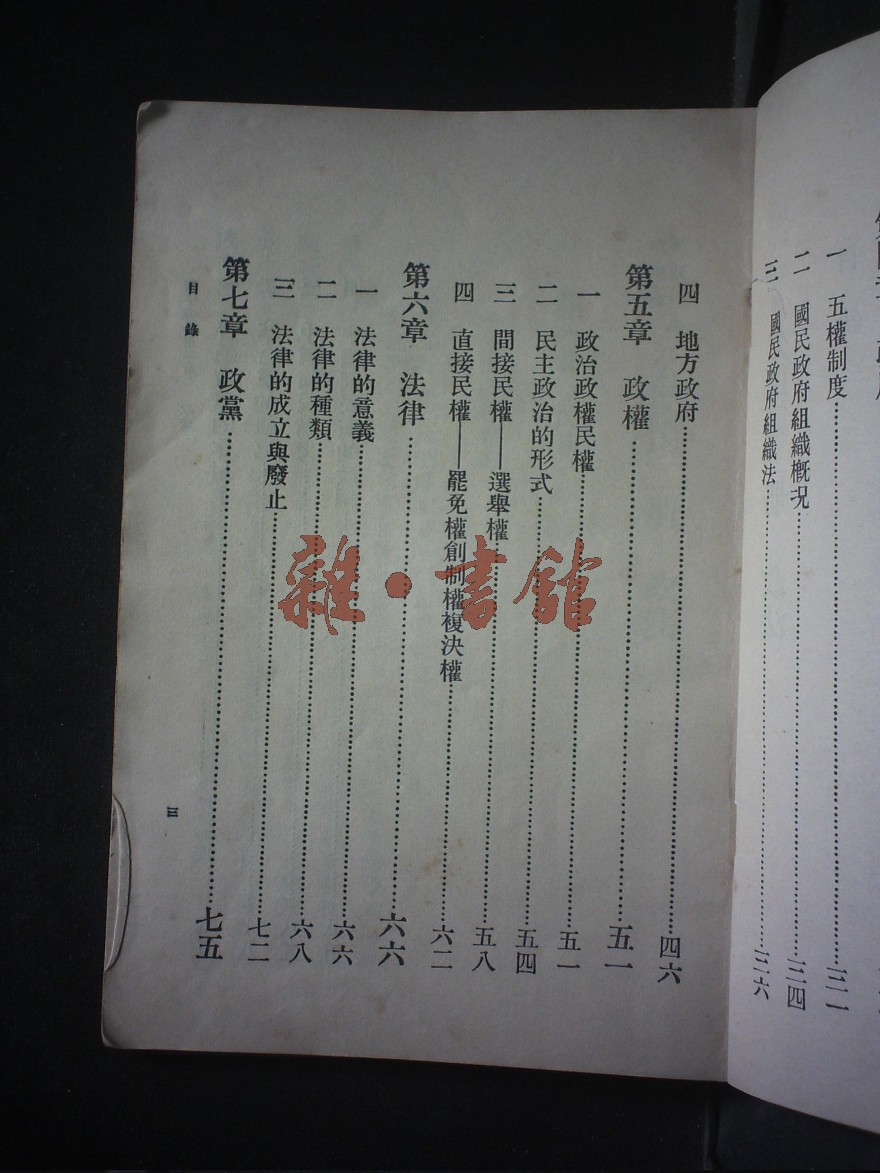 一　五權制度……三一
二　國民政府組織槪況……三四
三　國民政府組織法……三六
四　地方政府……四六
第五章　政權……五一
一　政治政權民權……五一
二　民主政治的形式……五四
三　間接民權——選舉權……五八
四　直接民權——罷免權創制權複決權……六二
第六章　法律……六六
一　法律的意義……六六
二　法律的種類……六八
三　法律的成立與廢止……七二
第七章　政黨……七五
目錄
三
雜·書館